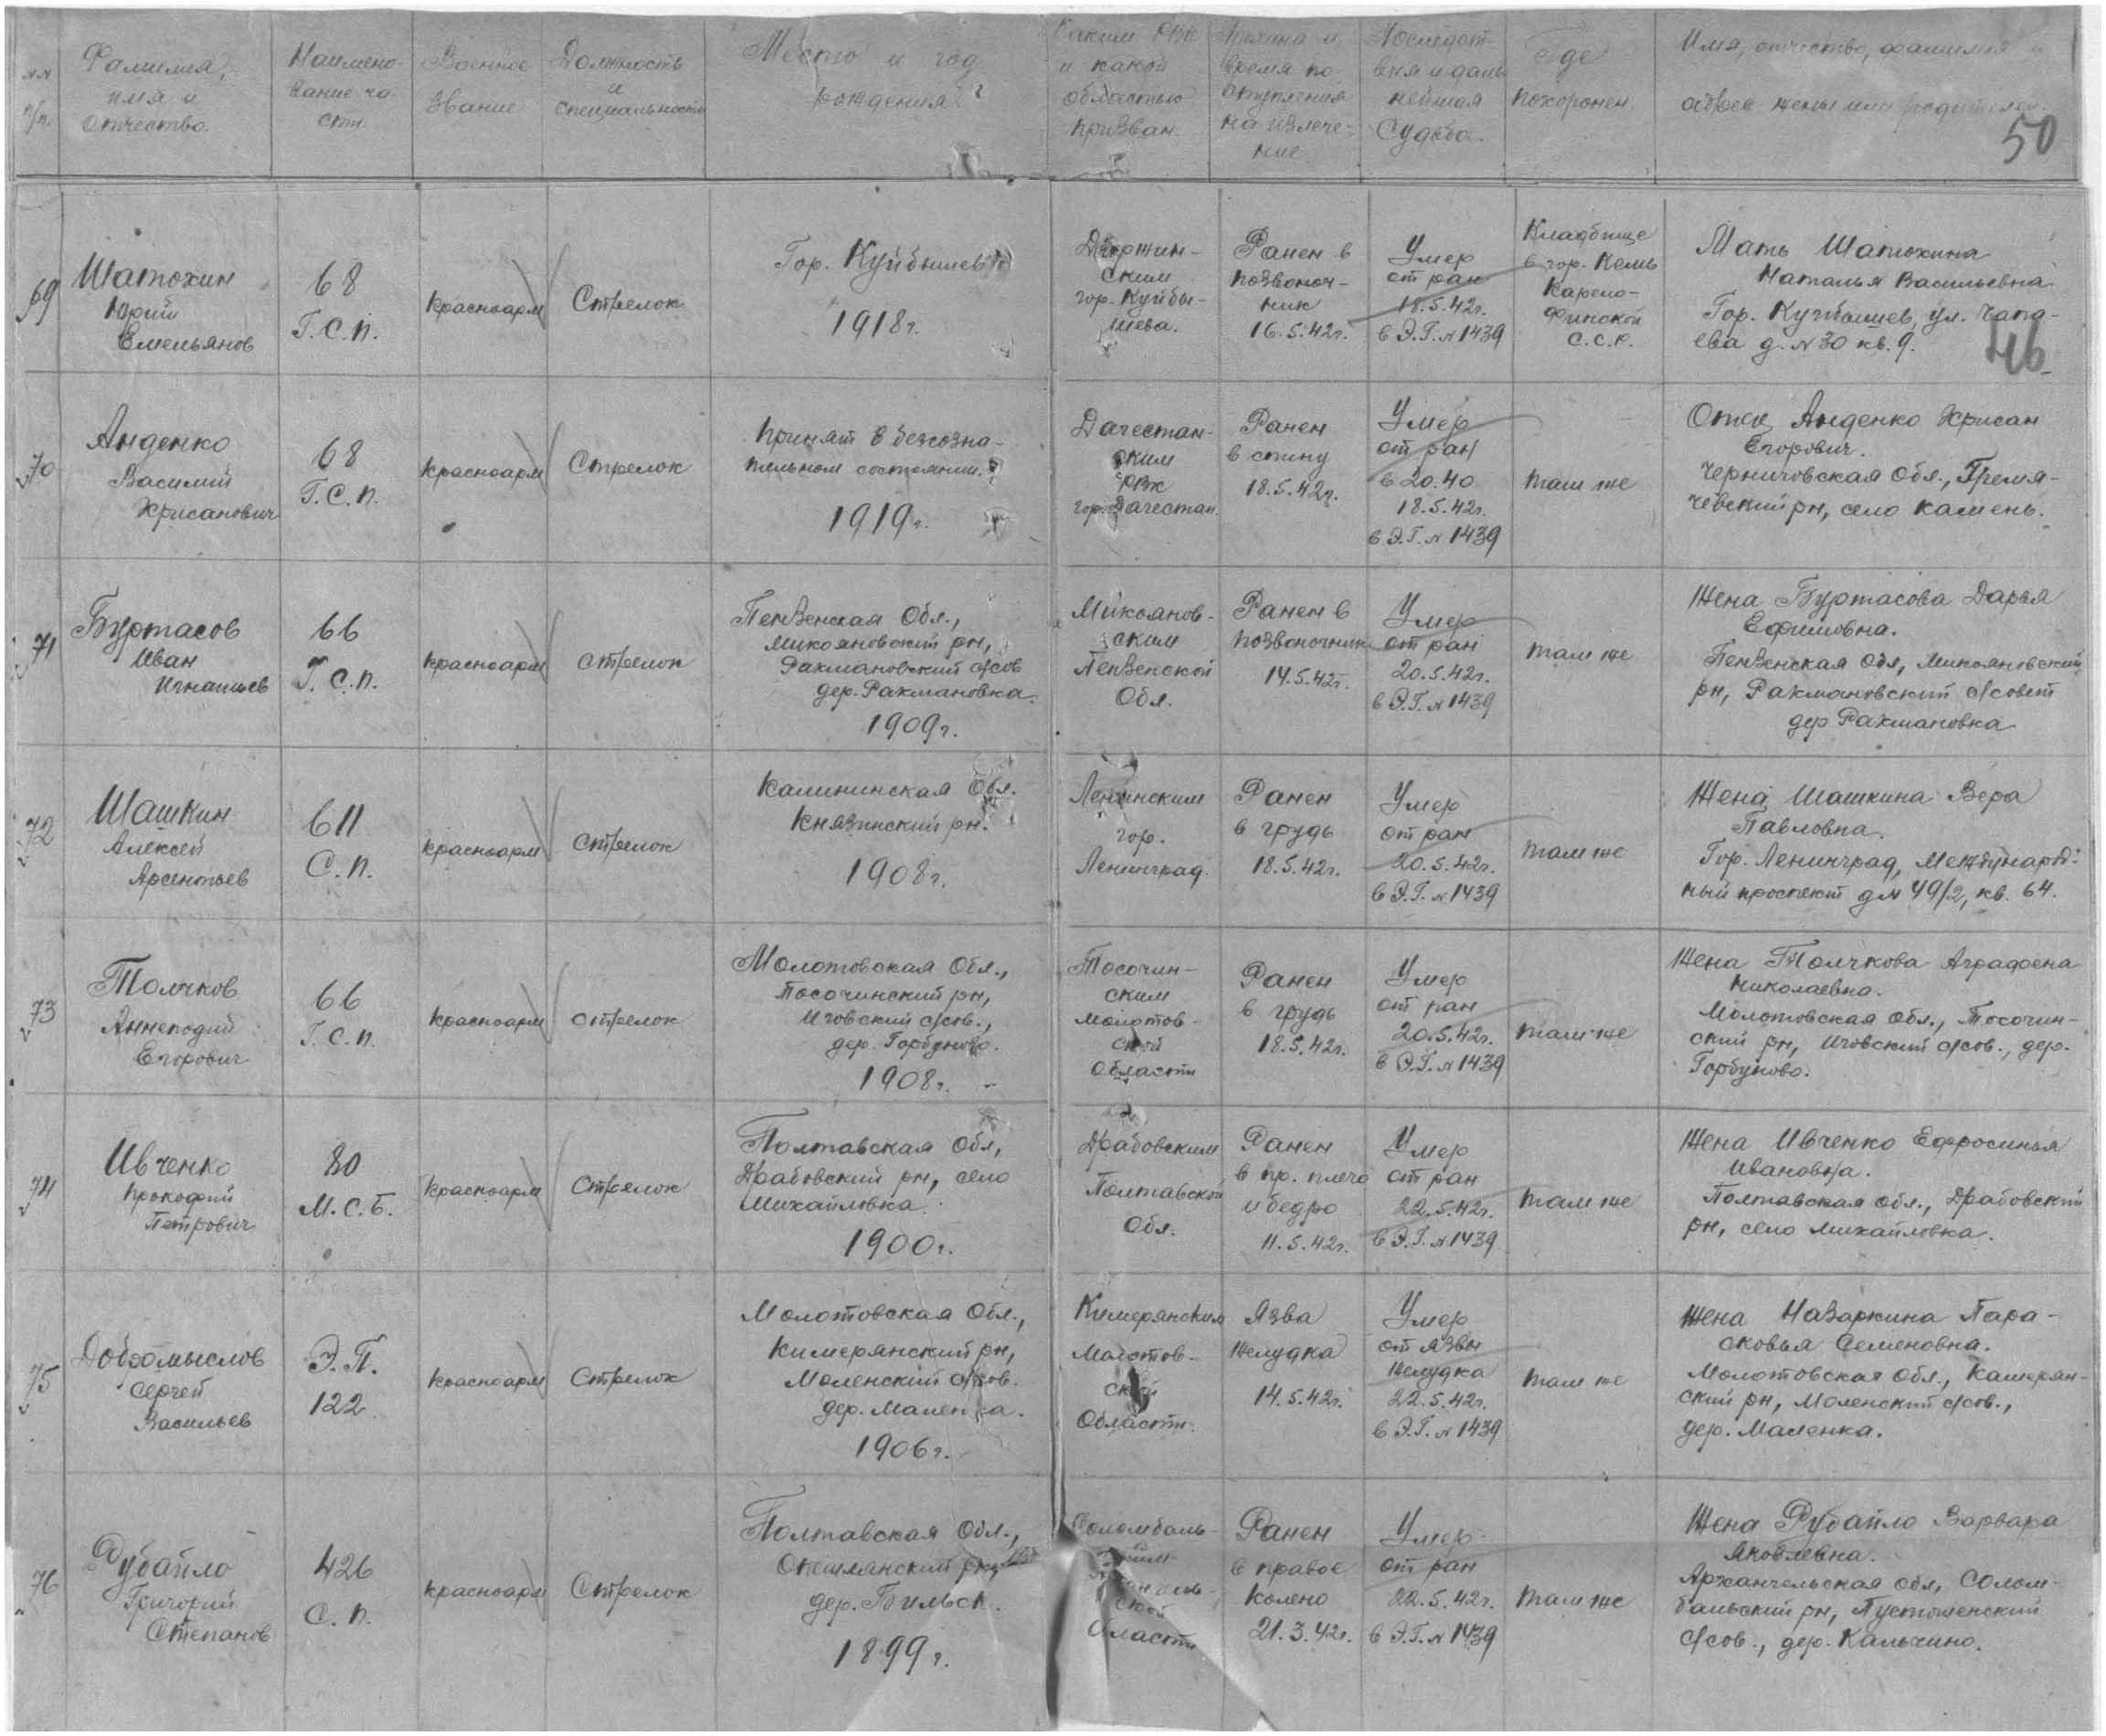 №№ п/п.
Фамилия,
имя и
отчество.
Наимено-
вание ча-
сти.
Военное
звание
Должность
и
специальность
Место и год
рождения
Каким РВК
и какой
областью
призван.
Причина и
время по-
ступления
на излече-
ние
Последст-
вия и даль
нейшая
судьба.
Где
похоронен.
Имя, отчество, фамилия и
адрес жены или родителей.
50
69
Шатохин
Юрий
Емельянов
68
Г.С.П.
Красноарм
Стрелок
Гор. Куйбышев
1918г.
Дзержин-
ским
гор. Куйбы-
шева.
Ранен в
позвоноч-
ник
16.5.42г.
Умер
от ран
18.5.42г.
в Э.Г. №1439
Кладбище
в гор. Кемь
Карело-
Финской
С.С.Р.
Мать Шатохина
Наталья Васильевна
Гор. Куйбышев, ул. Чапа-
ева д. №30 кв. 9.
46
70
Анденко
Василий
Хрисанович
68
Г.С.П.
Красноарм
Стрелок
Принят в безсозна-
тельном состоянии.
1919г.
Дагестан-
ским
РВК
гор. Дагестан.
Ранен
в спину
18.5.42г.
Умер
от ран
в 20.40
18.5.42г.
в Э.Г. №1439
там же
Отец Анденко Хрисан
Егорович.
Черниговская обл., Гремя-
чевский рн, село Камень.
71
Буртасов
Иван
Игнатьев
66
Г.С.П.
Красноарм
стрелок
Пензенская Обл.,
Микояновский рн,
Рахмановский с/сов
дер. Рахмановка.
1909г.
Микоянов-
ским
Пензенской
Обл.
Ранен в
позвоночник
14.5.42г.
Умер
от ран
20.5.42г.
в Э.Г. №1439
там же
Жена Буртасова Дарья
Ефимовна.
Пензенская Обл, Микояновский
рн, Рахмановский с/совет
дер Рахмановка
72
Шашкин
Алексей
Арсентьев
611
С.П.
красноарм
стрелок
Калининская Обл.
Князинский рн.
1908г.
Ленинским
гор.
Ленинград.
Ранен
в грудь
18.5.42г.
Умер
от ран
20.5.42г.
в Э.Г. №1439
там же
Жена Шашкина Вера
Павловна.
Гор. Ленинград, Междунаpод-
ный проспект д№ 49/2, кв. 64.
73
Толчков
Аннеподий
Егорович
66
Г.С.П.
красноарм
стрелок
Молотовская Обл.,
Посочинский рн,
Иговский с/сов.,
дер. Горбуново.
1908г.
Посочин-
ским
Молотов-
ской
Области
Ранен
в грудь
18.5.42г.
Умер
от ран
20.5.42г.
в Э.Г. №1439
там же
Жена Толчкова Аграфена
Николаевна.
Молотовская обл., Посочин-
ский рн, Иговский с/сов., дер.
Горбуново.
74
Ивченко
Прокофий
Петрович
80
М.С.Б.
Красноарм
Стрелок
Полтавская Обл,
Драбовский рн, село
Михайловка.
1900г.
Драбовским
Полтавской
Обл.
Ранен
в пр. плечо
и бедро
11.5.42г.
Умер
от ран
22.5.42г.
в Э.Г. №1439
там же
Жена Ивченко Ефросинья
Ивановна.
Полтавская обл., Драбовский
рн, село Михайловка.
75
Добромыслов
Сергей
Васильев
Э.П.
122
красноарм
Стрелок
Молотовская Обл.,
Кимерянский рн,
Моленский с/сов.
дер. Маленка.
1906г.
Кимерянским
Молотов-
ской
Области.
Язва
желудка
14.5.42г.
Умер
от язвы
желудка
22.5.42г.
в Э.Г. №1439
там же
Жена Назаркина Пара-
сковья Семеновна.
Молотовская обл., Камерян-
ский рн, Моленский с/сов.,
дер. Маленка.
76
Рубайло
Григорий
Степанов
426
С.П.
красноарм
Стрелок
Полтавская Обл.,
Опешлянский рн,
дер. Бильск.
1899г.
Соломбаль-
ской
Области
Ранен
в правое
колено
21.3.42г.
Умер
от ран
22.5.42г.
в Э.Г. №1439
там же
Жена Рубайло Варвара
Яковлевна.
Архангельская обл, Солом-
бальский рн, Пустошенский
с/сов., дер. Кальчино.